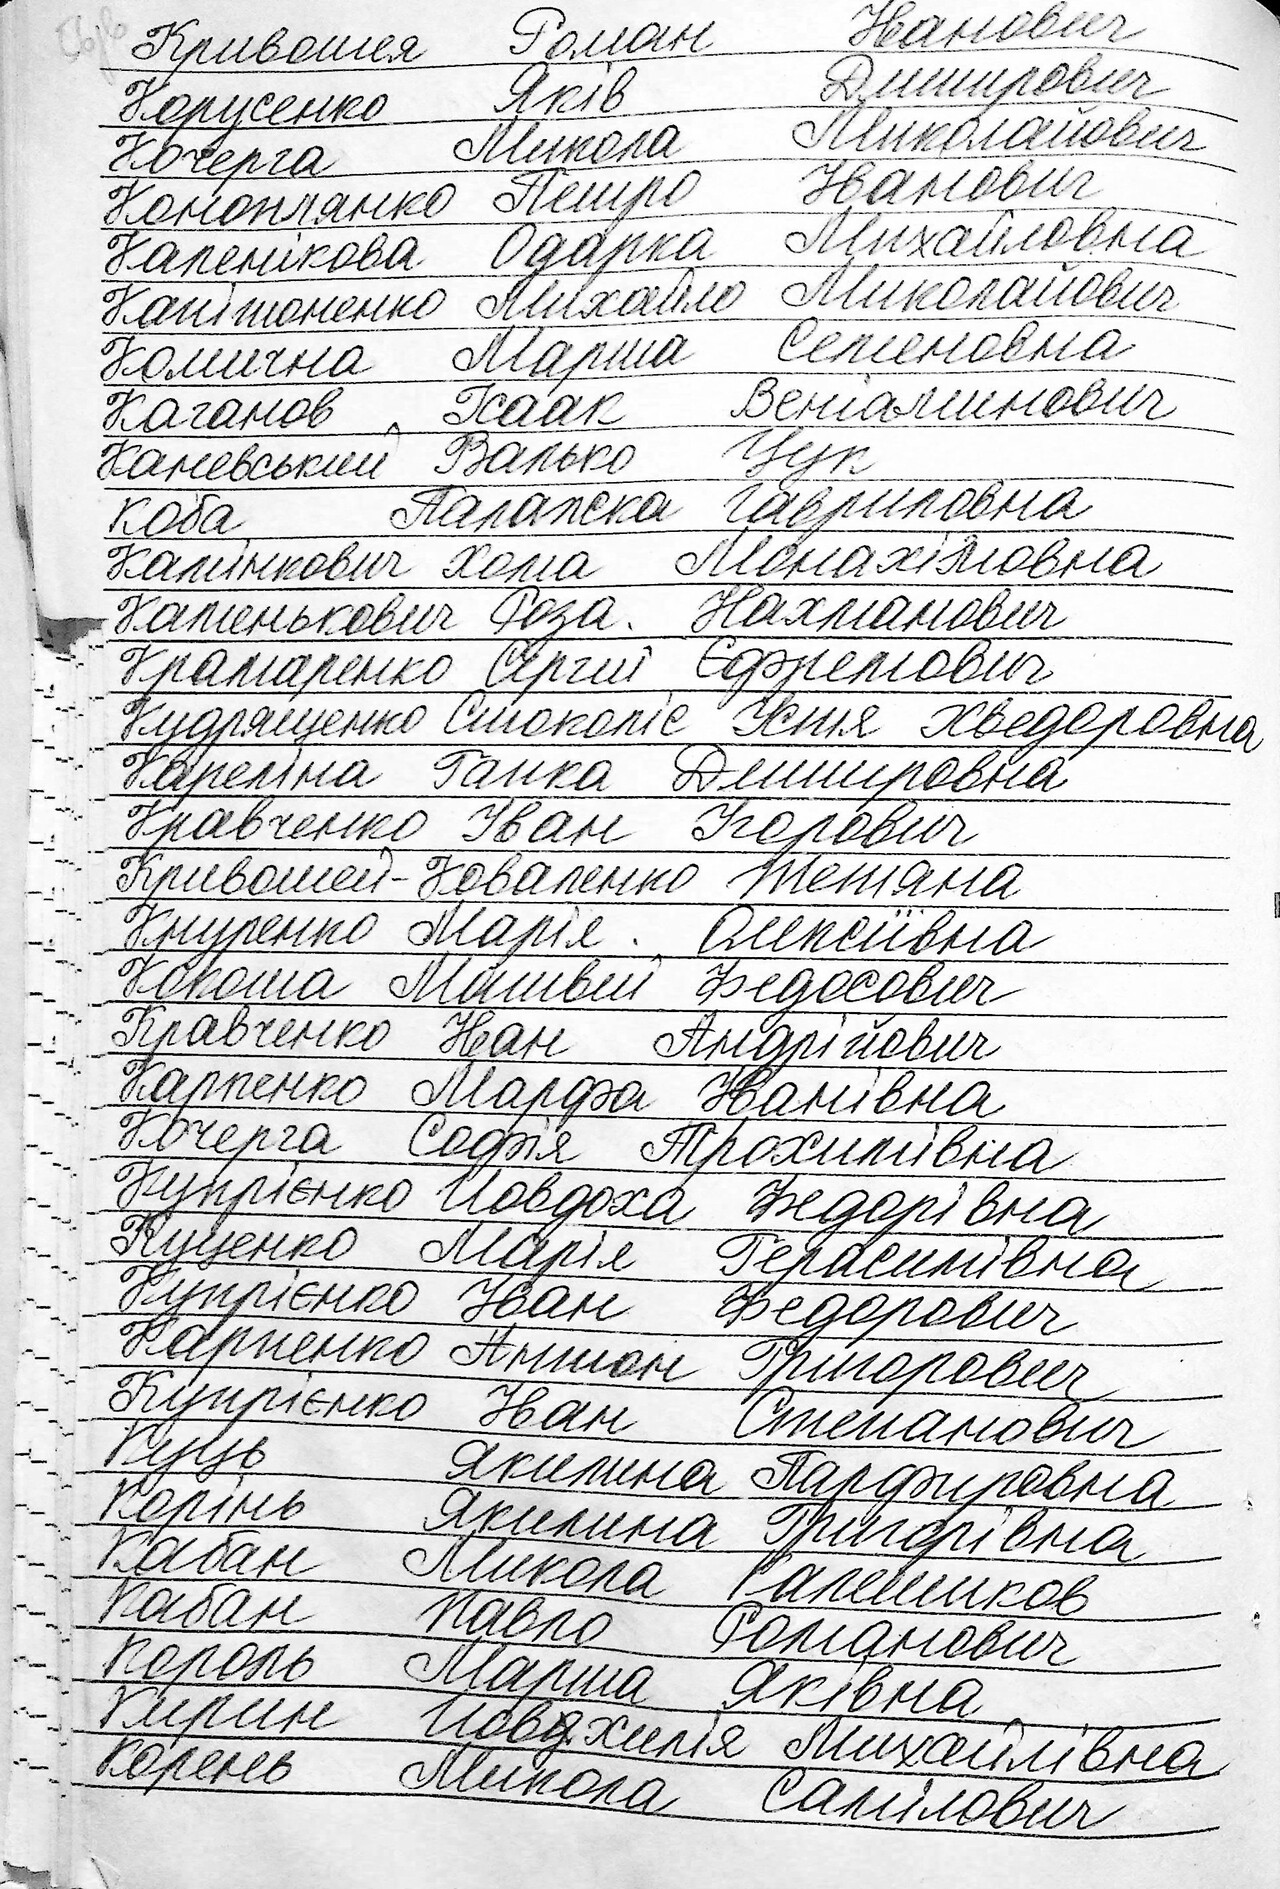 Кривошея Роман Іванович
Корусенко Яків Дмитрович
Кочерга Микола Миколайович
Конопляненко Петро Іванович
Каленікова Одарка Михайловна
Капітоненко Михайло Миколайович
Комична Марта Семеновна
Каганов Ісаак Веніамінович
Каневський Валько Цук
Коба Палажка Гавриловна
Камінкович Хома Монахімовна
Каменькович Роза. Нахманович
Крамаренко Сергій Єфремович
Кудрященко Стокопіс Устя Хведоровна
Кареліна Ганка Дмитровна
Кравченко Іван Ігорович
Кривошей-Коваленко Тетяна
Кнуренко Марія. Олексіївна
Кокоша Матвій Федосович
Кравченко Іван Андрійович
Карпенко Марфа Іванівна
Кочерга Софія Трохимівна
Купрієнко Йовдоха Федорівна
Куценко Марія Герасимівна
Купрієнко Іван Федорович
Карпенко Антон Григорович
Купрієнко Іван Степанович
Куць Якилина Парфировна
Корінь Якилина Григорівна
Кабан Микола
Кабан Павло Романович
Король Марта Яківна
Кирин Михайлівна
Корень Микола Самілович